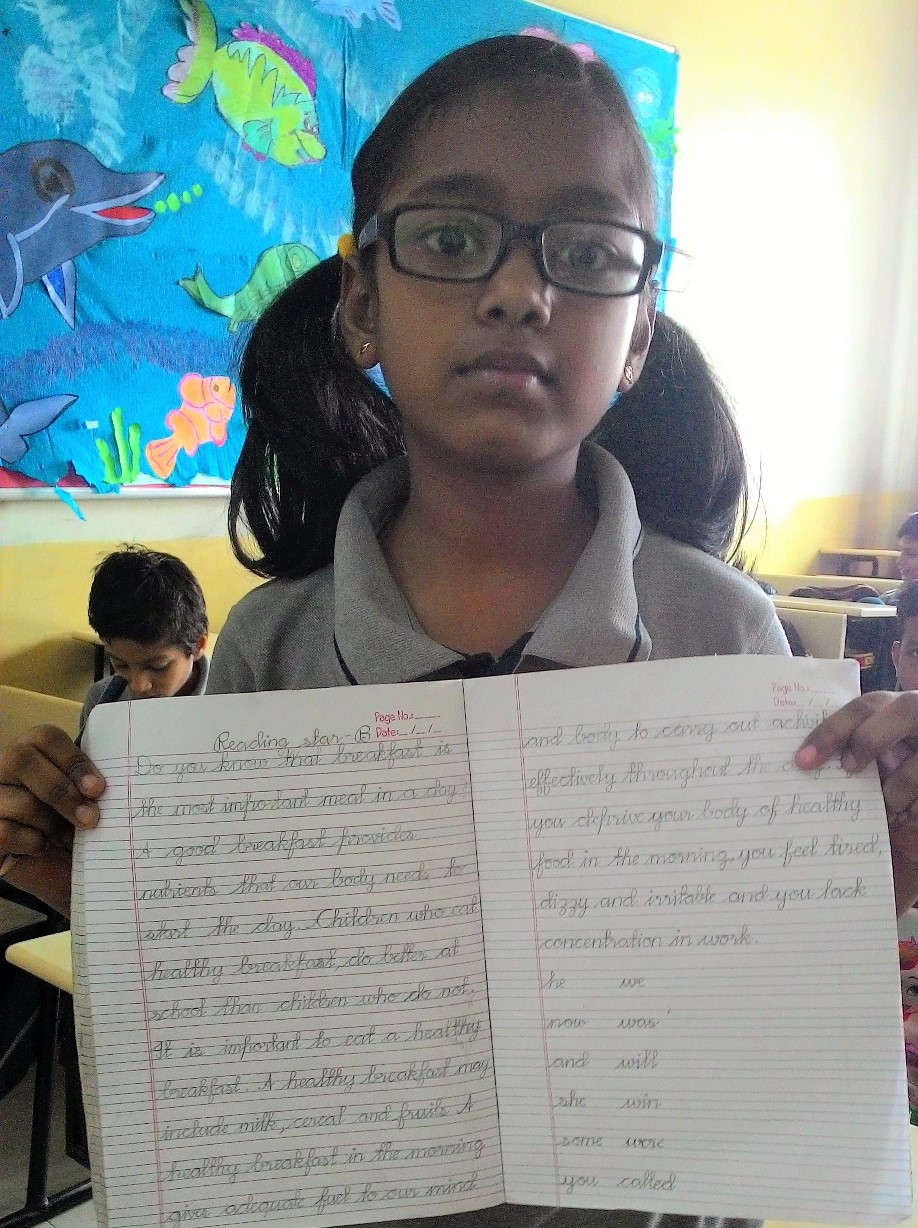 Page No.:
Date: / /
Reading star-B
Do you know that breakfast is
the most important meal in a day?
A good breakfast provides
nutrients that our body needs to
start the day. Children who eat
healthy breakfast, do better at
school than children who do not.
It is important to eat a healthy
breakfast. A healthy breakfast may
include milk, cereal and fruits A
healthy breakfast in the morning
give adequate fuel to our mind
Page No.:
Date: / /
and body to carry out
effectively throughout the
you deprive your body of healthy
food in the morning, you feel tired,
dizzy and irritable and you lack
concentration in work.
he we
now was
and will
she win
some were
you called